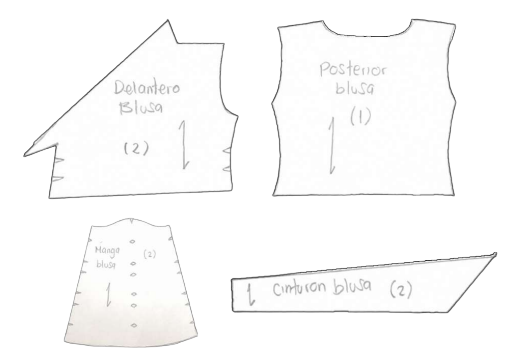 Delantero
Blusa
(2)
Posterior
blusa
(1)
Manga (2)
blusa
Cinturon blusa (2)